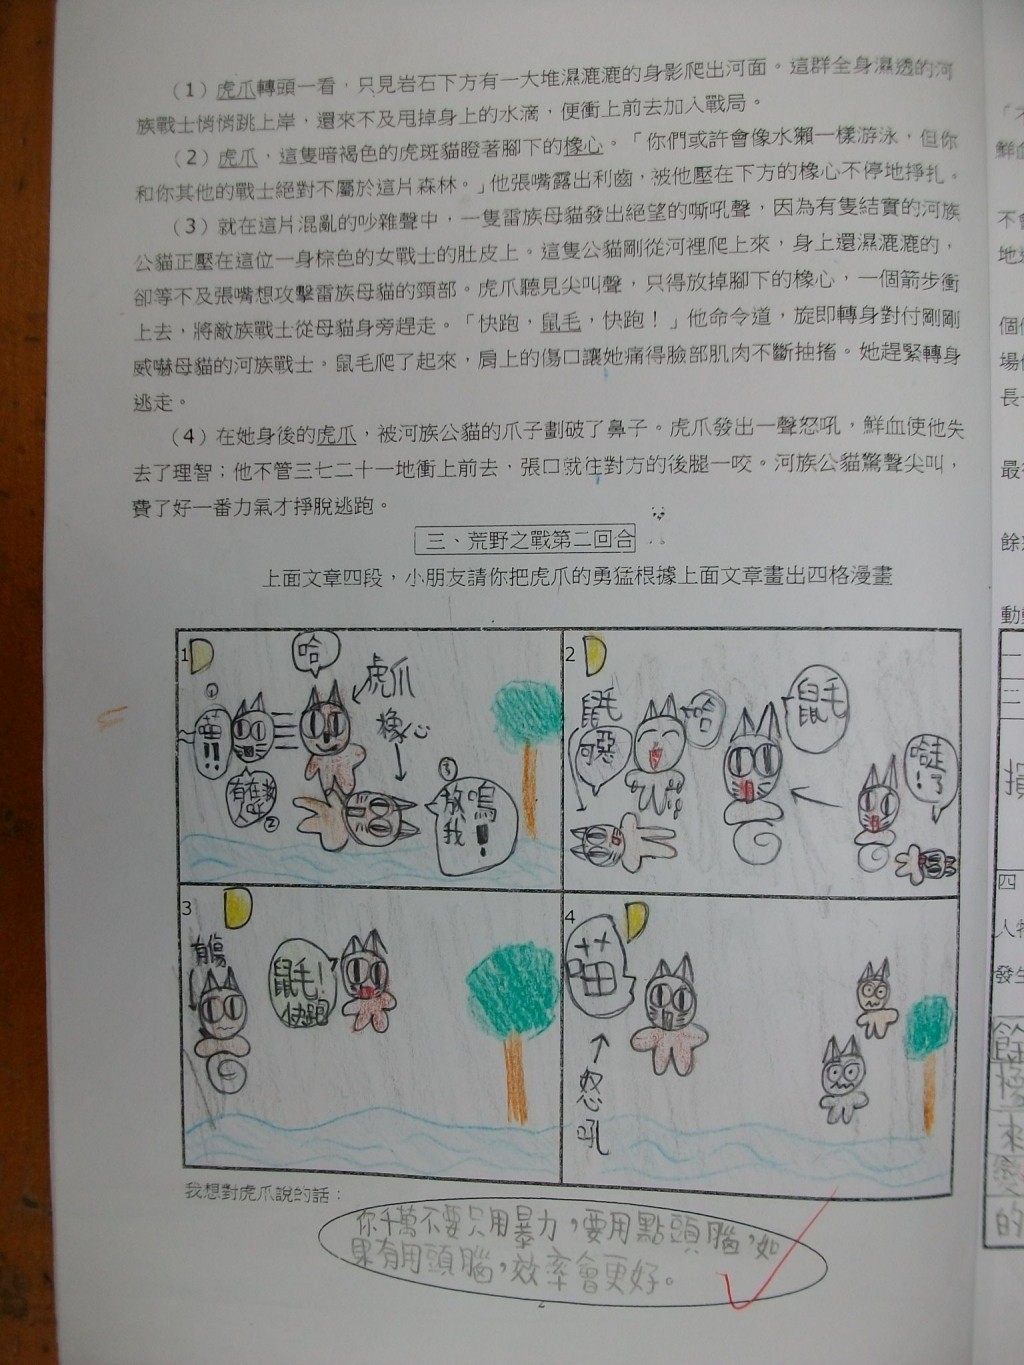 （1）虎爪轉頭一看，只見岩石下方有一大堆濕漉漉的身影爬出河面。這群全身濕透的河
族戰士悄悄跳上岸，還來不及甩掉身上的水滴，便衝上前去加入戰局。
（2）虎爪，這隻暗褐色的虎斑貓瞪著腳下的橡心。「你們或許會像水獺一樣游泳，但你
和你其他的戰士絕對不屬於這片森林。」他張嘴露出利齒，被他壓在下方的橡心不停地掙扎。
（3）就在這片混亂的吵雜聲中，一隻雷族母貓發出絕望的嘶吼聲，因為有隻結實的河族
公貓正壓在這位一身棕色的女戰士的肚皮上。這隻公貓剛從河裡爬上來，身上還濕漉漉的，
卻等不及張嘴想攻擊雷族母貓的頸部。虎爪聽見尖叫聲，只得放掉腳下的橡心，一個箭步衝
上去，將敵族戰士從母貓身旁趕走。「快跑，鼠毛，快跑！」他命令道，旋即轉身對付剛剛
威嚇母貓的河族戰士。鼠毛爬了起來，肩上的傷口讓她痛得臉部肌肉不斷抽搐。她趕緊轉身
逃走。
（4）在她身後的虎爪，被河族公貓的爪子劃破了鼻子。虎爪發出一聲怒吼，鮮血使他失
去了理智；他不管三七二十一地衝上前去，張口就往對方的後腿一咬。河族公貓驚聲尖叫，
費了好一番力氣才掙脫逃跑。
三、荒野之戰第二回合
上面文章四段，小朋友請你把虎爪的勇猛根據上面文章畫出四格漫畫
1
哈
虎爪
橡心
①
喵!!
②
③
嗚!
放我
2
鼠毛
可惡
哈
鼠毛
3
有傷
鼠毛!
快跑
4
苗
怒吼
我想對虎爪說的話：
你千萬不要只用暴力，要用點頭腦，如
果有用頭腦，效率會更好。
2